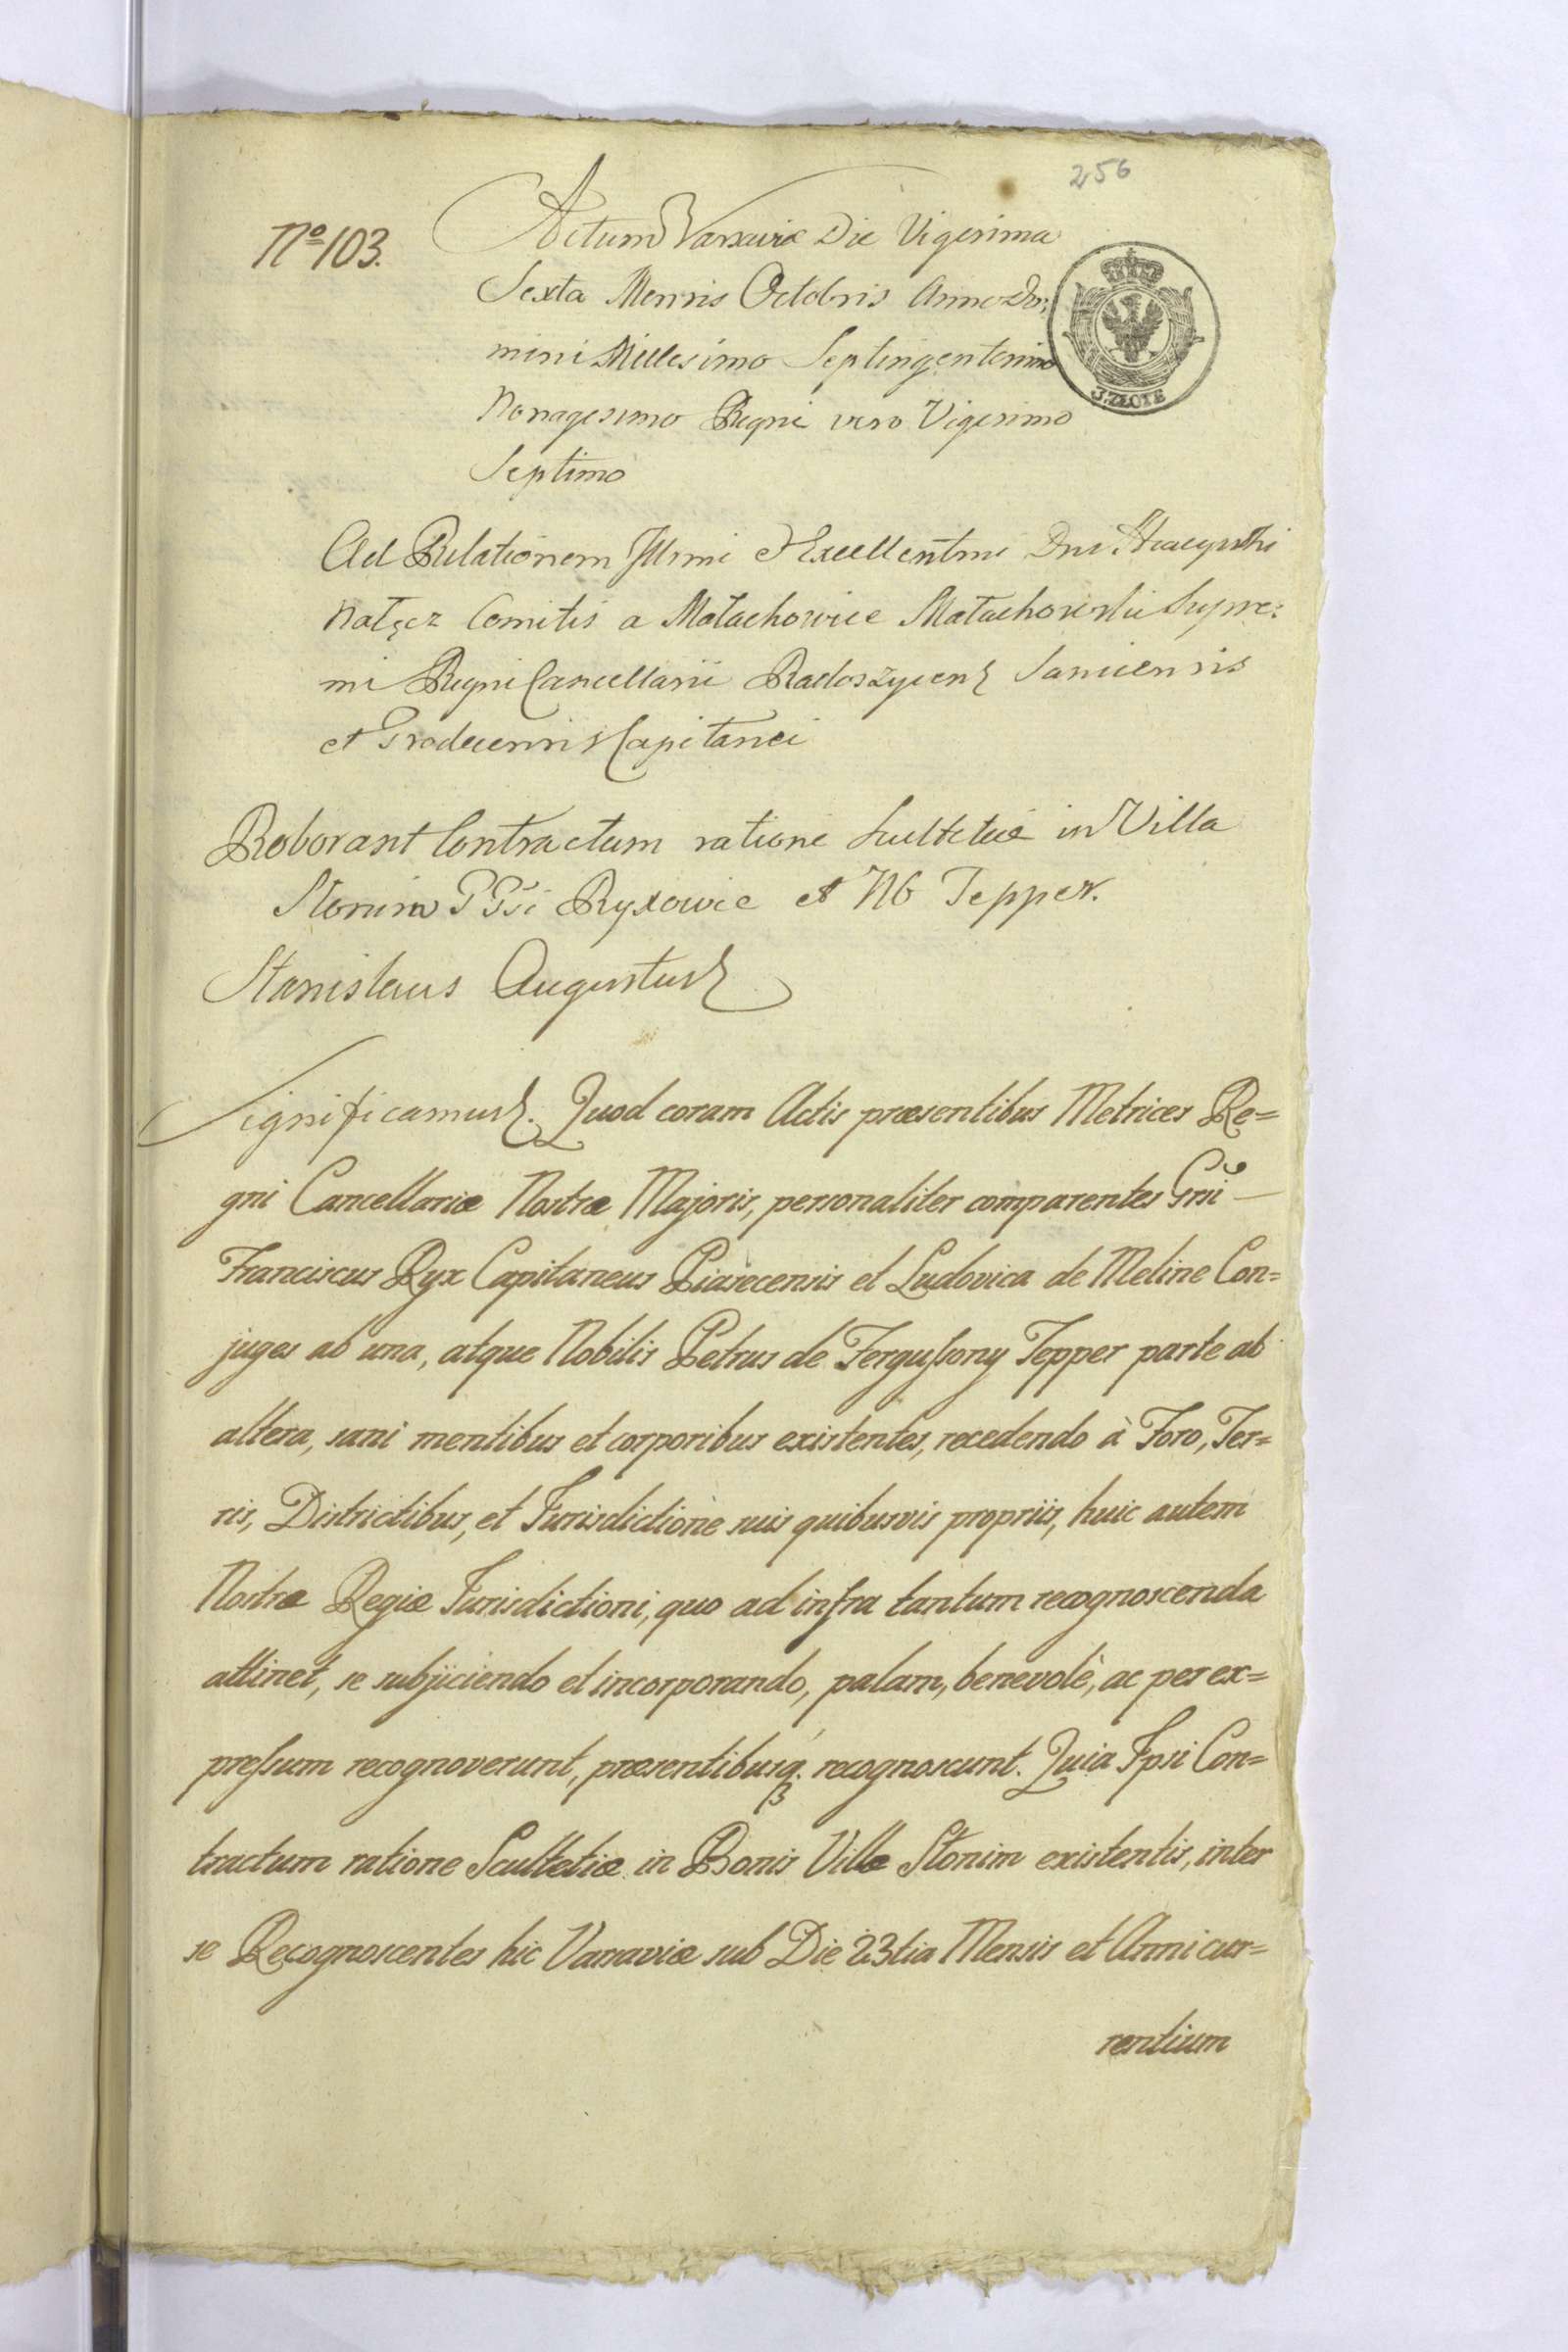 256
Nº 103.
Actum Varsaviæ Die Vigesima
Sexta Mensis Octobris Anno Do:
mini Millesimo Septingentesimo
Nonagesimo Regni vero Vigesimo
Septimo
J. ZŁOTE
Ad Relationem Illmi et Excellentmi Dni Hyacynthi
Nałęcz Comitis a Małachowice Małachowski Supre:
mi Regni Cancellarii Radoszycen Saniensis
et Grodecensis Capitanei
Roborant Contractum ratione Scultetiæ in Villa
Słonim Ryxowie et NB Tepper.
Stanislaus Augustus
Significamus. Quod coram Actis præsentibus Metrices Re=
gni Cancellariæ Nostræ Majoris, personaliter comparentes Grsi
Franciscus Ryx Capitaneus Piasecensis et Ludovica de Meline Con=
juges ab una, atque Nobilis Petrus de Fergussony Tepper parte ab
altera, sani mentibus et corporibus existentes, recedendo à Foro, Ter=
ris, Districtibus, et Jurisdictione suis quibusvis propriis, huic autem
Nostræ Regiæ Jurisdictioni, quo ad infra tantum recognoscenda
attinet, se subjiciendo et incorporando, palam, benevolè, ac per ex=
pressum recognoverunt, præsentibusq. recognoscunt. Quia Ipsi Con=
tractum ratione Scultetiæ in Bonis Villæ Słonim existentis, inter
se Recognoscentes hic Varsaviæ sub Die 23tia Mensis et Anni cur=
rentium